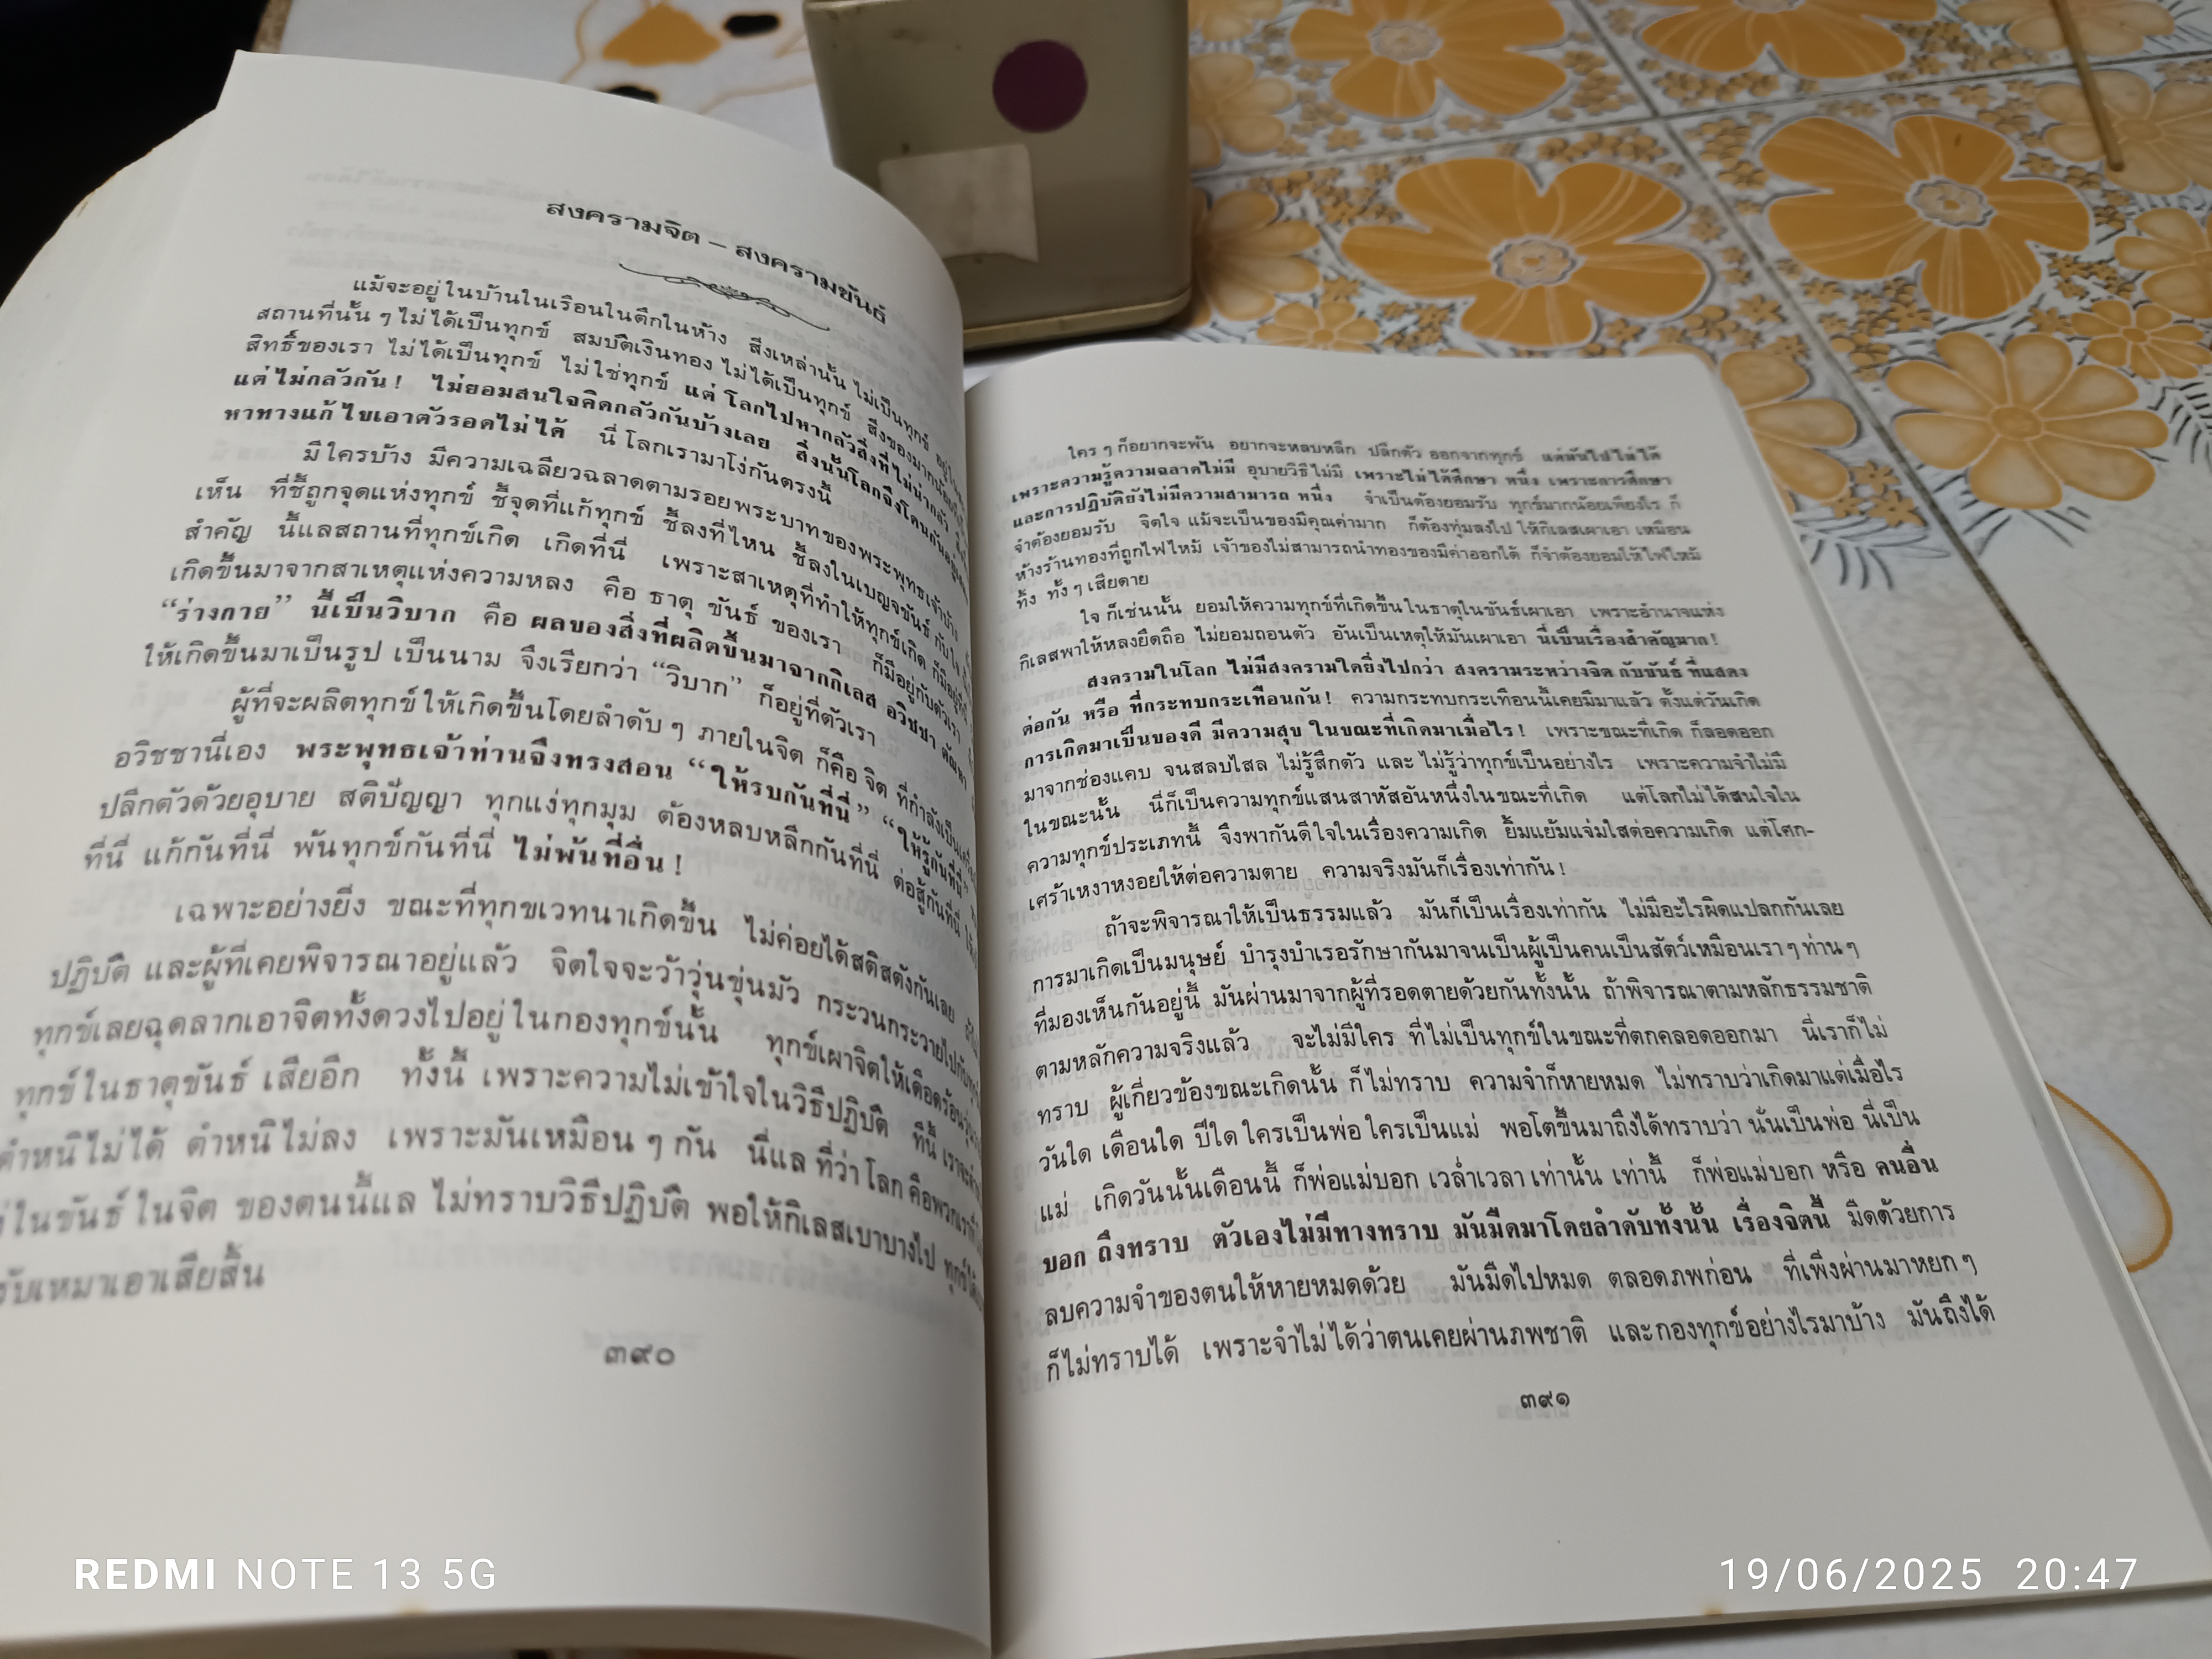 สงครามจิต – สงครามขันธ์
แม้จะอยู่ในบ้านในเรือนในตึกในห้าง สิ่งเหล่านั้น ไม่เป็นทุกข์ อยู่ใน
สถานที่นั้น ๆ ไม่ได้เป็นทุกข์ สมบัติเงินทอง ไม่ได้เป็นทุกข์ สิ่งของมากน้อย
สิทธิ์ของเรา ไม่ได้เป็นทุกข์ ไม่ใช่ทุกข์ แต่ โลกไปหากลัวสิ่งที่ไม่น่ากลัว
แต่ไม่กลัวกัน! ไม่ยอมสนใจคิดกลัวกันบ้างเลย สิ่งนั้นโลกจึงโดนกันอยู่
หาทางแก้ไขเอาตัวรอดไม่ได้ นี่ โลกเรามาโง่กันตรงนี้
มีใครบ้าง มีความเฉลียวฉลาดตามรอยพระบาทของพระพุทธเจ้าบ้าง
เห็น ที่ชี้ถูกจุดแห่งทุกข์ ชี้จุดที่แก้ทุกข์ ชี้ลงที่ไหน ชี้ลงในเบญจขันธ์ กับใจ
สำคัญ นี้แลสถานที่ทุกข์เกิด เกิดที่นี่ เพราะสาเหตุที่ทำให้ทุกข์เกิด ก็มีอยู่ที่นี่
เกิดขึ้นมาจากสาเหตุแห่งความหลง คือ ธาตุ ขันธ์ ของเรา ก็มีอยู่กับตัวเรา
“ร่างกาย” นี้เป็นวิบาก คือ ผลของสิ่งที่ผลิตขึ้นมาจากกิเลส อวิชชา ตัณหา
ให้เกิดขึ้นมาเป็นรูป เป็นนาม จึงเรียกว่า “วิบาก” ก็อยู่ที่ตัวเรา
ผู้ที่จะผลิตทุกข์ให้เกิดขึ้นโดยลำดับๆ ภายในจิต ก็คือ จิต ที่กำลังเป็น
อวิชชานี่เอง พระพุทธเจ้าท่านจึงทรงสอน “ให้รบกันที่นี่” “ให้รู้กันที่นี่”
ปลีกตัวด้วยอุบาย สติปัญญา ทุกแง่ทุกมุม ต้องหลบหลีกกันที่นี่ ต่อสู้กันที่นี่
ที่นี่ แก้กันที่นี่ พ้นทุกข์กันที่นี่ ไม่พ้นที่อื่น!
เฉพาะอย่างยิ่ง ขณะที่ทุกขเวทนาเกิดขึ้น ไม่ค่อยได้สติสตังกันเลย
ปฏิบัติ และผู้ที่เคยพิจารณาอยู่แล้ว จิตใจจะว้าวุ่นขุ่นมัว กระวนกระวายไปกับ
ทุกข์เลยฉุดลากเอาจิตทั้งดวงไปอยู่ในกองทุกข์นั้น ทุกข์เผาจิตให้เดือดร้อน
ทุกข์ในธาตุขันธ์ เสียอีก ทั้งนี้ เพราะความไม่เข้าใจในวิธีปฏิบัติ ที่นี้
ตำหนิไม่ได้ ตำหนิไม่ลง เพราะมันเหมือน ๆ กัน นี่แล ที่ว่า โลก คือพวกเรา
ในขันธ์ ในจิต ของตนนี้แล ไม่ทราบวิธีปฏิบัติ พอให้กิเลสเบาบางไป
รับเหมาเอาเสียสิ้น
๓๙๐
ใคร ๆ ก็อยากจะพ้น อยากจะหลบหลีก ปลีกตัว ออกจากทุกข์ แต่มันไปไม่ได้
เพราะความรู้ความฉลาดไม่มี อุบายวิธีไม่มี เพราะไม่ได้ศึกษา หนึ่ง เพราะการศึกษา
และการปฏิบัติยังไม่มีความสามารถ หนึ่ง จำเป็นต้องยอมรับ ทุกข์มากน้อยเพียงไร ก็
จำต้องยอมรับ จิตใจ แม้จะเป็นของมีคุณค่ามาก ก็ต้องทุ่มลงไป ให้กิเลสเผาเอา เหมือน
ห้างร้านทองที่ถูกไฟไหม้ เจ้าของไม่สามารถนำทองของมีค่าออกได้ ก็จำต้องยอมให้ไฟไหม้
ทิ้ง ทั้ง ๆ เสียดาย
ใจ ก็เช่นนั้น ยอมให้ความทุกข์ที่เกิดขึ้นในธาตุในขันธ์เผาเอา เพราะอำนาจแห่ง
กิเลสพาให้หลงยึดถือ ไม่ยอมถอนตัว อันเป็นเหตุให้มันเผาเอา นี่เป็นเรื่องสำคัญมาก!
สงครามในโลก ไม่มีสงครามใดยิ่งไปกว่า สงครามระหว่างจิต กับขันธ์ ที่แสดง
ต่อกัน หรือ ที่กระทบกระเทือนกัน! ความกระทบกระเทือนนี้เคยมีมาแล้ว ตั้งแต่วันเกิด
การเกิดมาเป็นของดี มีความสุข ในขณะที่เกิดมาเมื่อไร! เพราะขณะที่เกิด ก็ลอดออก
มาจากช่องแคบ จนสลบไสล ไม่รู้สึกตัว และ ไม่รู้ว่าทุกข์เป็นอย่างไร เพราะความจำไม่มี
ในขณะนั้น นี่ก็เป็นความทุกข์แสนสาหัสอันหนึ่งในขณะที่เกิด แต่โลกไม่ได้สนใจใน
ความทุกข์ประเภทนี้ จึงพากันดีใจในเรื่องความเกิด ยิ้มแย้มแจ่มใสต่อความเกิด แต่โศก-
เศร้าเหงาหงอยให้ต่อความตาย ความจริงมันก็เรื่องเท่ากัน!
ถ้าจะพิจารณาให้เป็นธรรมแล้ว มันก็เป็นเรื่องเท่ากัน ไม่มีอะไรผิดแปลกกันเลย
การมาเกิดเป็นมนุษย์ บำรุงบำเรอรักษากันมาจนเป็นผู้เป็นคนเป็นสัตว์เหมือนเราๆท่านๆ
ที่มองเห็นกันอยู่นี้ มันผ่านมาจากผู้ที่รอดตายด้วยกันทั้งนั้น ถ้าพิจารณาตามหลักธรรมชาติ
ตามหลักความจริงแล้ว จะไม่มีใคร ที่ไม่เป็นทุกข์ในขณะที่ตกคลอดออกมา นี่เราก็ไม่
ทราบ ผู้เกี่ยวข้องขณะเกิดนั้น ก็ไม่ทราบ ความจำก็หายหมด ไม่ทราบว่าเกิดมาแต่เมื่อไร
วันใด เดือนใด ปีใด ใครเป็นพ่อ ใครเป็นแม่ พอโตขึ้นมาถึงได้ทราบว่า นั่นเป็นพ่อ นี่เป็น
แม่ เกิดวันนั้นเดือนนี้ ก็พ่อแม่บอก เวล่ำเวลา เท่านั้น เท่านี้ ก็พ่อแม่บอก หรือ คนอื่น
บอก ถึงทราบ ตัวเองไม่มีทางทราบ มันมืดมาโดยลำดับทั้งนั้น เรื่องจิตนี้ มืดด้วยการ
ลบความจำของตนให้หายหมดด้วย มันมืดไปหมด ตลอดภพก่อน ที่เพิ่งผ่านมาหยก ๆ
ก็ไม่ทราบได้ เพราะจำไม่ได้ว่าตนเคยผ่านภพชาติ และกองทุกข์อย่างไรมาบ้าง มันถึงได้
๓๙๑
REDMI NOTE 13 5G
19/06/2025 20:47